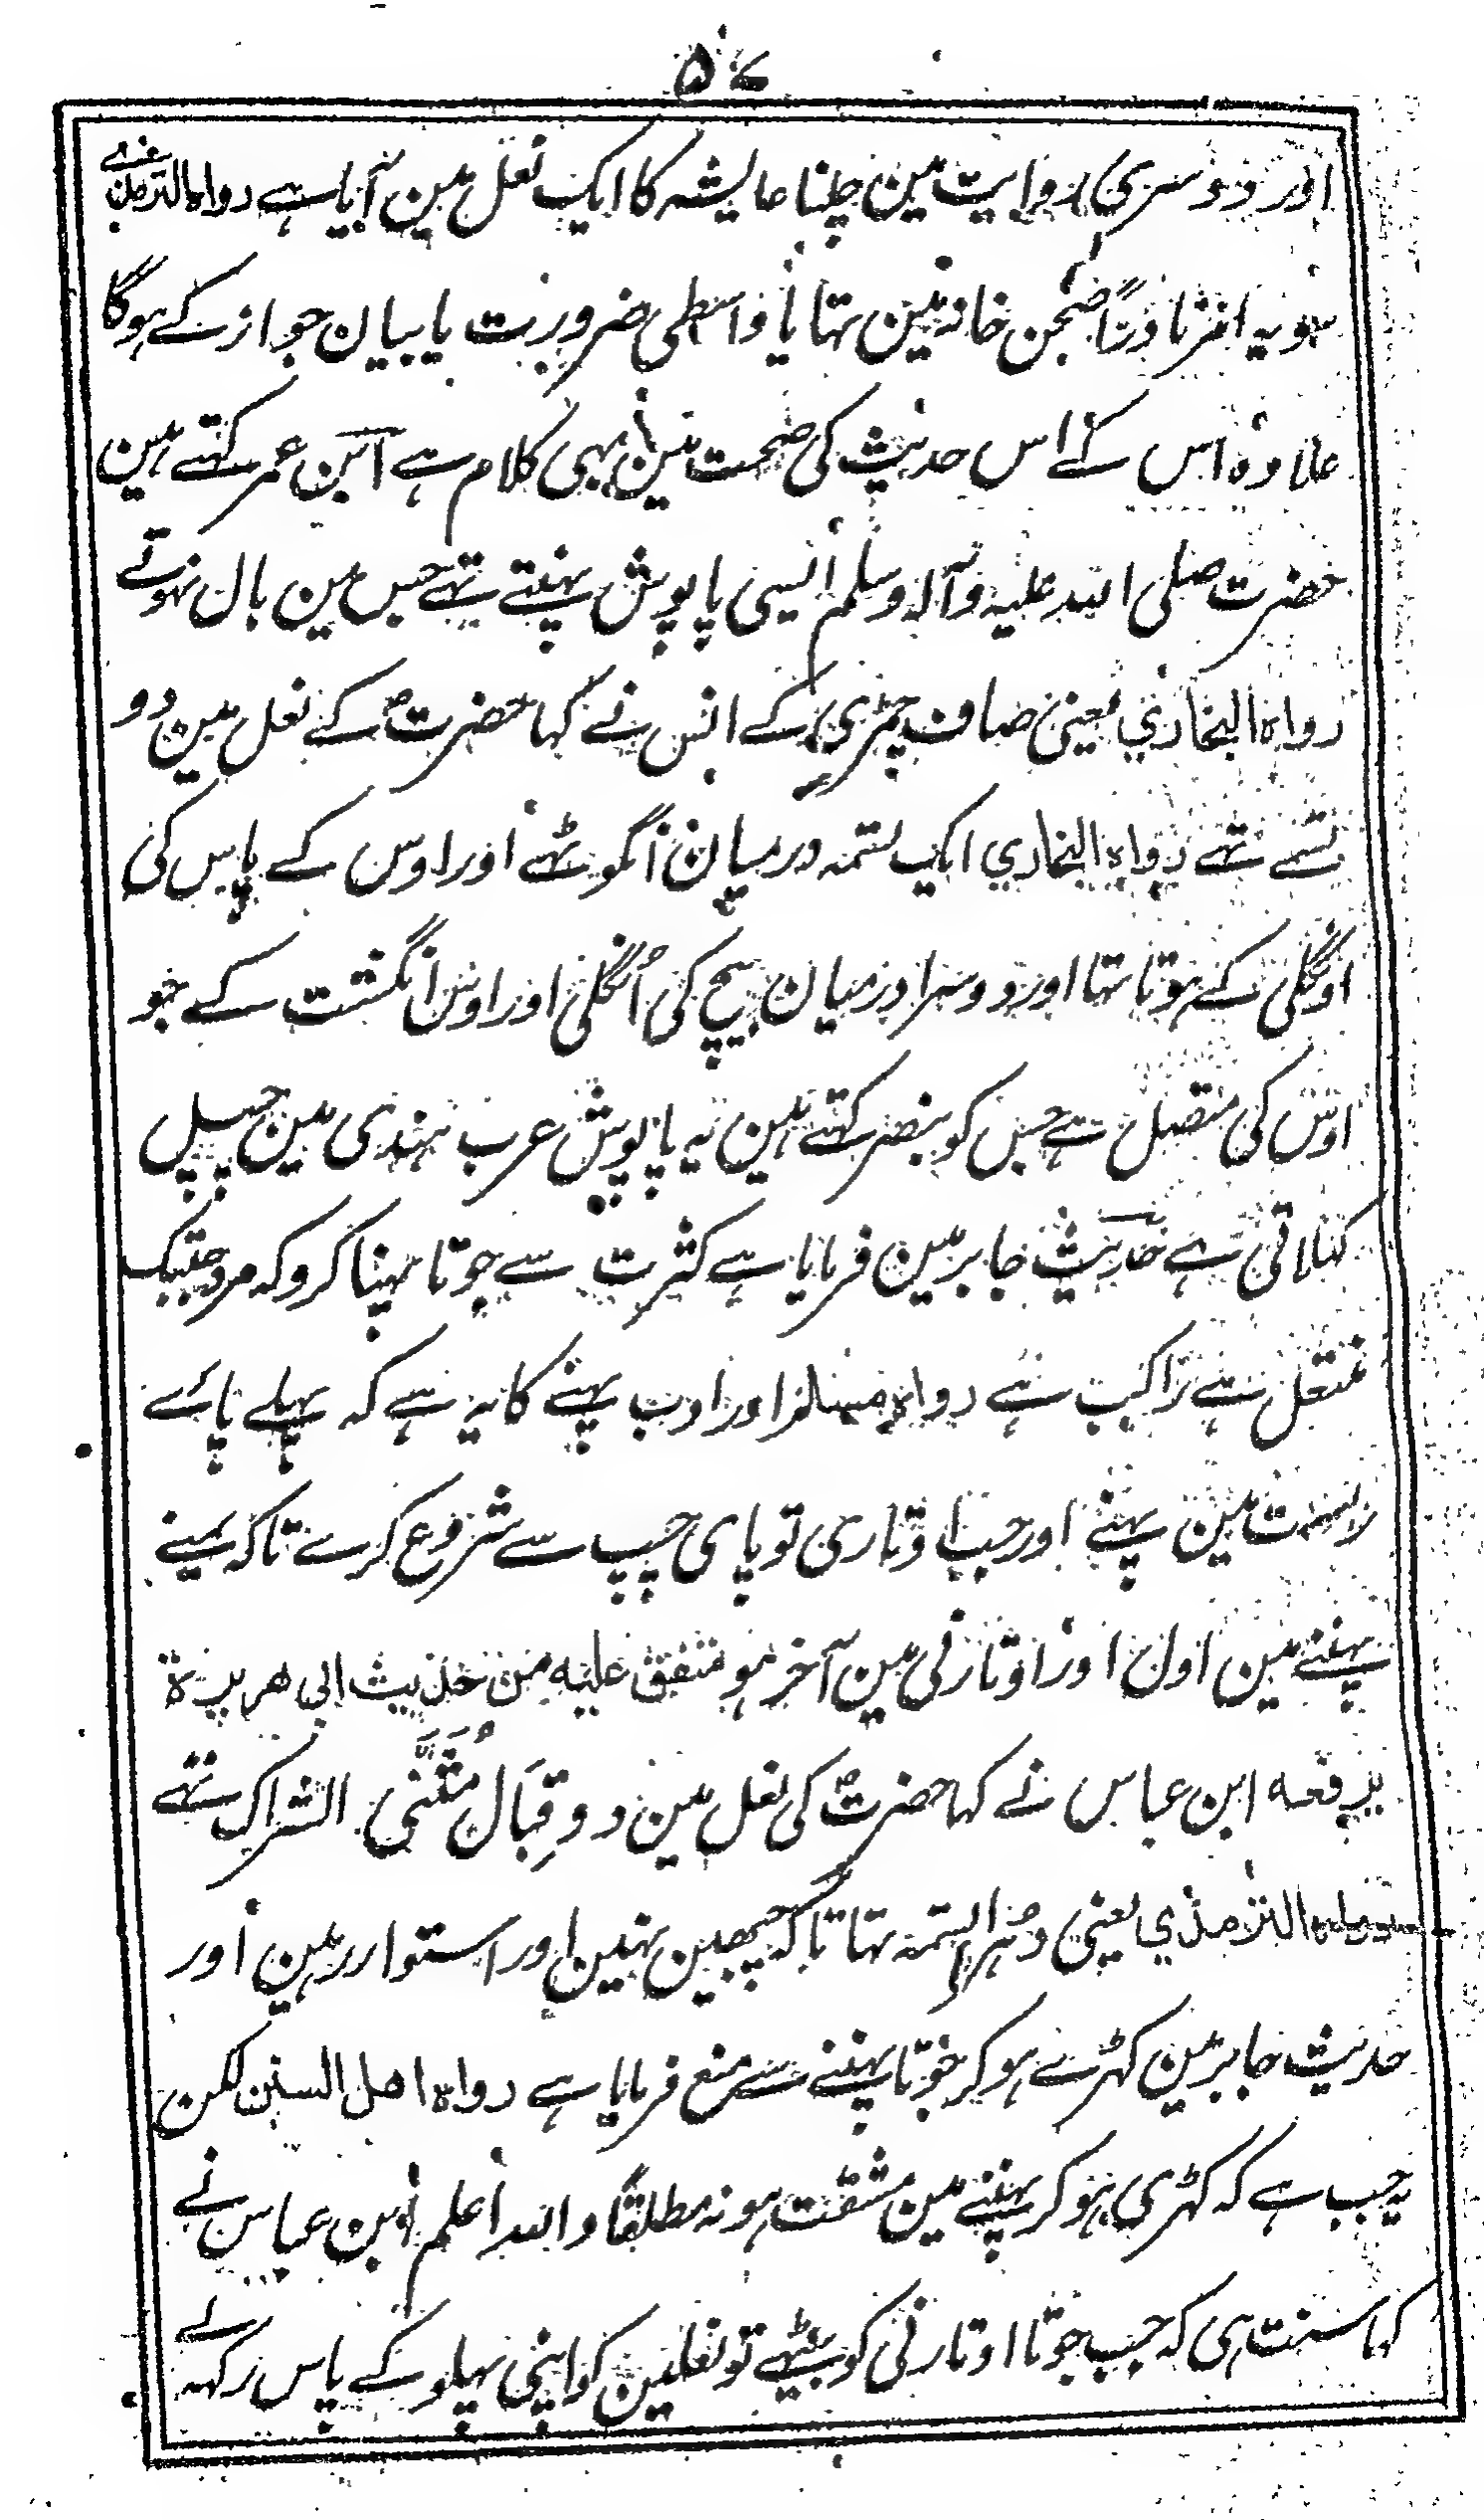 ۵۷
اور دوسری روایت مین چلنا عایشہ کا ایک نعل مین آیا ہے رواه الترمذی
سو یہ امر نادرًا صحن خانہ مین تہا یا واسطی ضرورت یا بیان جواز کے ہوگا
علاوہ اس کے اس حدیث کی صحت مین بہی کلام ہے ابن عمر کہتے ہین
حضرت صلی اللہ علیہ وآلہ وسلم ایسی پاپوش پہنتے تہے جس مین بال نہوتے
رواه البخاري یعنی صاف چمڑی کے انس نے کہا حضرتؐ کے نعل مین دو
تسمے تہے رواه البخاري ایک تسمہ درمیان انگوٹہے اور اوس کے پاس کی
اونگلی کے ہوتا تہا اور دوسرا درمیان بیچ کی اُنگلی اور اوس انگشت کے جو
اوس کی متصل ہے جس کو بنصر کہتے ہین یہ پاپوش عرب ہندی مین چپل
کہلاتی ہے حدیث جابر مین فرمایا ہے کثرت سے جوتا پہنا کرو کہ مرد جبتک
منتعل ہے راکب ہے رواه مسلم اور ادب پہنے کا یہ ہے کہ پہلے پائے
راست مین پہنے اور جب اوتاری تو پای چپ سے شروع کرے تاکہ یمنے
پہننے مین اول اور اوتارنی مین آخر ہو متفق عليه من حديث ابى هريرة
يرفعه ابن عباس نے کہا حضرتؐ کی نعل مین دو قِبَال مُثَنَّى الشراک تہے
رواه الترمذي یعنی دُہرا تسمہ تہا تاکہ چبہین نہین اور استوار رہین اور
حدیث جابر مین کہڑے ہوکر جوتا پہننے سے منع فرمایا ہے رواه اهل السنن لکن
یہ جب ہے کہ کہڑی ہوکر پہننے مین مشقت ہو نہ مطلقًا واللہ اعلم ابن عباس نے
کہا سنت ہی کہ جب جوتا اوتارنی کو بیٹہے تو نعلین کو اپنی پہلو کے پاس رکہہ لے